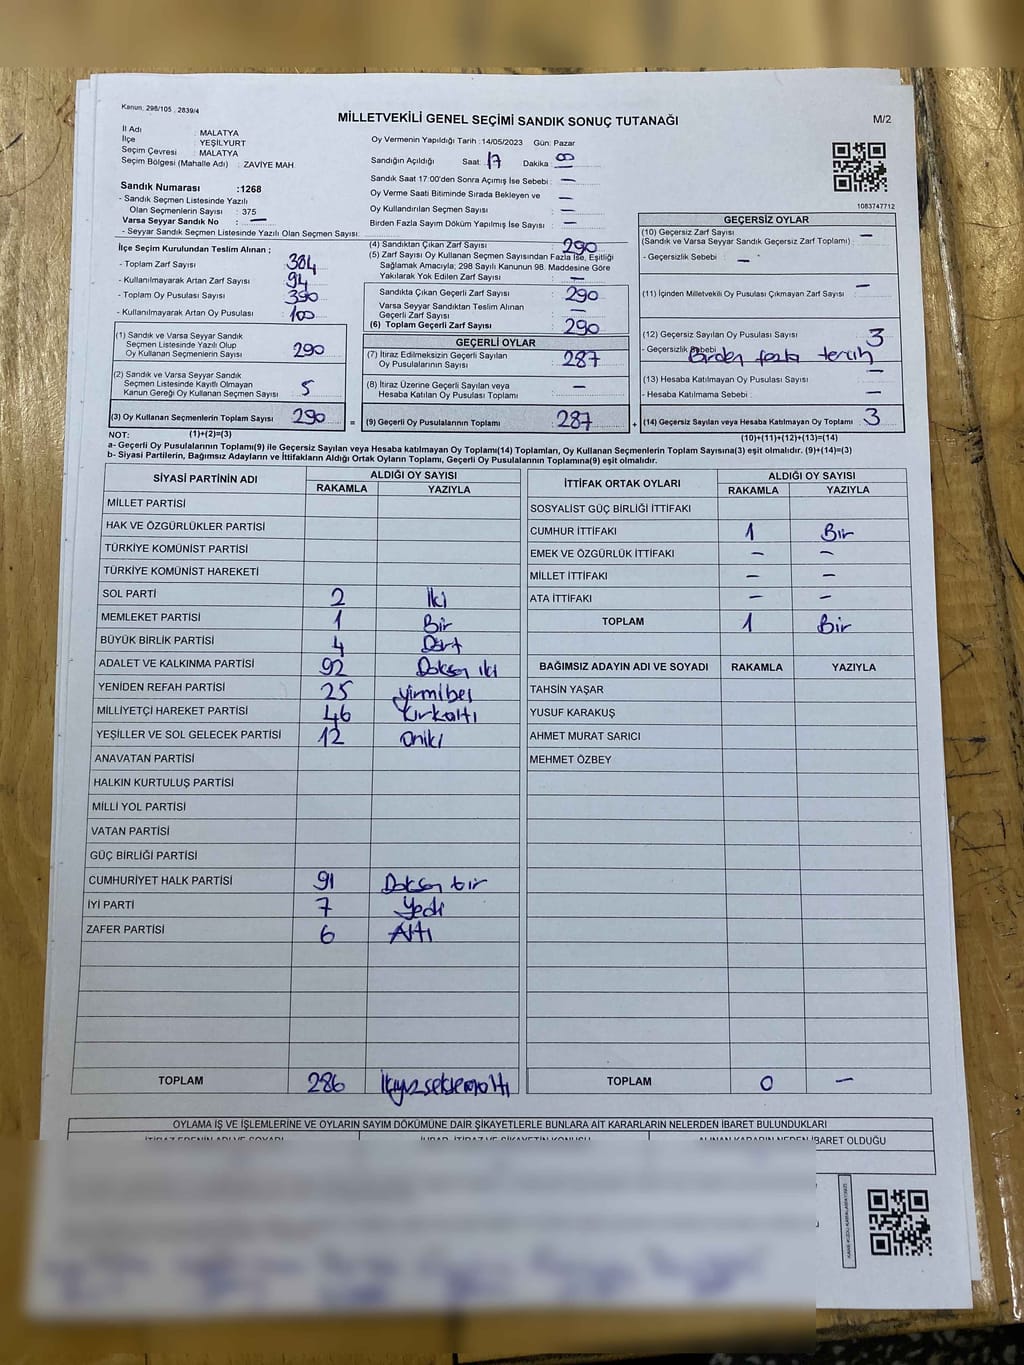 Kanun: 298/105 , 2839/4
MİLLETVEKİLİ GENEL SEÇİMİ SANDIK SONUÇ TUTANAĞI
M/2
İl Adı : MALATYA
İlçe : YEŞİLYURT
Seçim Çevresi : MALATYA
Seçim Bölgesi (Mahalle Adı) : ZAVİYE MAH
Oy Vermenin Yapıldığı Tarih :14/05/2023 Gün: Pazar
Sandığın Açıldığı Saat: 17 Dakika : 00
Sandık Saat 17:00'den Sonra Açımış İse Sebebi : —
Oy Verme Saati Bitiminde Sırada Bekleyen ve
Oy Kullandırılan Seçmen Sayısı : —
Birden Fazla Sayım Döküm Yapılmış İse Sayısı : —
1083747712
Sandık Numarası :1268
- Sandık Seçmen Listesinde Yazılı
Olan Seçmenlerin Sayısı : 375
Varsa Seyyar Sandık No : —
- Seyyar Sandık Seçmen Listesinde Yazılı Olan Seçmen Sayısı:
İlçe Seçim Kurulundan Teslim Alınan ;
- Toplam Zarf Sayısı : 384
- Kullanılmayarak Artan Zarf Sayısı : 94
- Toplam Oy Pusulası Sayısı : 390
- Kullanılmayarak Artan Oy Pusulası : 100
(1) Sandık ve Varsa Seyyar Sandık
Seçmen Listesinde Yazılı Olup
Oy Kullanan Seçmenlerin Sayısı : 290
(2) Sandık ve Varsa Seyyar Sandık
Seçmen Listesinde Kayıtlı Olmayan
Kanun Gereği Oy Kullanan Seçmen Sayısı : 5
(3) Oy Kullanan Seçmenlerin Toplam Sayısı : 290
(4) Sandıktan Çıkan Zarf Sayısı : 290
(5) Zarf Sayısı Oy Kullanan Seçmen Sayısından Fazla İse, Eşitliği
Sağlamak Amacıyla; 298 Sayılı Kanunun 98. Maddesine Göre
Yakılarak Yok Edilen Zarf Sayısı : —
Sandıkta Çıkan Geçerli Zarf Sayısı : 290
Varsa Seyyar Sandıktan Teslim Alınan
Geçerli Zarf Sayısı : —
(6) Toplam Geçerli Zarf Sayısı : 290
GEÇERLİ OYLAR
(7) İtiraz Edilmeksizin Geçerli Sayılan
Oy Pusulalarının Sayısı : 287
(8) İtiraz Üzerine Geçerli Sayılan veya
Hesaba Katılan Oy Pusulası Toplamı : —
= (9) Geçerli Oy Pusulalarının Toplamı : 287
GEÇERSİZ OYLAR
(10) Geçersiz Zarf Sayısı —
(Sandık ve Varsa Seyyar Sandık Geçersiz Zarf Toplamı) :
- Geçersizlik Sebebi : —
(11) İçinden Milletvekili Oy Pusulası Çıkmayan Zarf Sayısı : —
(12) Geçersiz Sayılan Oy Pusulası Sayısı : 3
- Geçersizlik Sebebi : Birden fazla tercih
(13) Hesaba Katılmayan Oy Pusulası Sayısı : —
- Hesaba Katılmama Sebebi : —
+ (14) Geçersiz Sayılan veya Hesaba Katılmayan Oy Toplamı : 3
NOT: (1)+(2)=(3)
(10)+(11)+(12)+(13)=(14)
a- Geçerli Oy Pusulalarının Toplamı(9) ile Geçersiz Sayılan veya Hesaba katılmayan Oy Toplamı(14) Toplamları, Oy Kullanan Seçmenlerin Toplam Sayısına(3) eşit olmalıdır. (9)+(14)=(3)
b- Siyasi Partilerin, Bağımsız Adayların ve İttifakların Aldığı Oyların Toplamı, Geçerli Oy Pusulalarının Toplamına(9) eşit olmalıdır.
SİYASİ PARTİNİN ADI ALDIĞI OY SAYISI
RAKAMLA YAZIYLA
MİLLET PARTİSİ
HAK VE ÖZGÜRLÜKLER PARTİSİ
TÜRKİYE KOMÜNİST PARTİSİ
TÜRKİYE KOMÜNİST HAREKETİ
SOL PARTİ 2 İki
MEMLEKET PARTİSİ 1 Bir
BÜYÜK BİRLİK PARTİSİ 4 Dört
ADALET VE KALKINMA PARTİSİ 92 Doksan iki
YENİDEN REFAH PARTİSİ 25 yirmibeş
MİLLİYETÇİ HAREKET PARTİSİ 46 Kırkaltı
YEŞİLLER VE SOL GELECEK PARTİSİ 12 oniki
ANAVATAN PARTİSİ
HALKIN KURTULUŞ PARTİSİ
MİLLİ YOL PARTİSİ
VATAN PARTİSİ
GÜÇ BİRLİĞİ PARTİSİ
CUMHURİYET HALK PARTİSİ 91 Doksan bir
İYİ PARTİ 7 Yedi
ZAFER PARTİSİ 6 Altı
TOPLAM 286 İkiyüzseksenaltı
İTTİFAK ORTAK OYLARI ALDIĞI OY SAYISI
RAKAMLA YAZIYLA
SOSYALİST GÜÇ BİRLİĞİ İTTİFAKI
CUMHUR İTTİFAKI 1 Bir
EMEK VE ÖZGÜRLÜK İTTİFAKI — —
MİLLET İTTİFAKI — —
ATA İTTİFAKI — —
TOPLAM 1 Bir
BAĞIMSIZ ADAYIN ADI VE SOYADI RAKAMLA YAZIYLA
TAHSİN YAŞAR
YUSUF KARAKUŞ
AHMET MURAT SARICI
MEHMET ÖZBEY
TOPLAM 0 —
OYLAMA İŞ VE İŞLEMLERİNE VE OYLARIN SAYIM DÖKÜMÜNE DAİR ŞİKAYETLERLE BUNLARA AİT KARARLARIN NELERDEN İBARET BULUNDUKLARI
İTİRAZ EDENİN ADI VE SOYADI İHBAR, İTİRAZ VE ŞİKAYETİN KONUSU ALINAN KARARIN NEDEN İBARET OLDUĞU